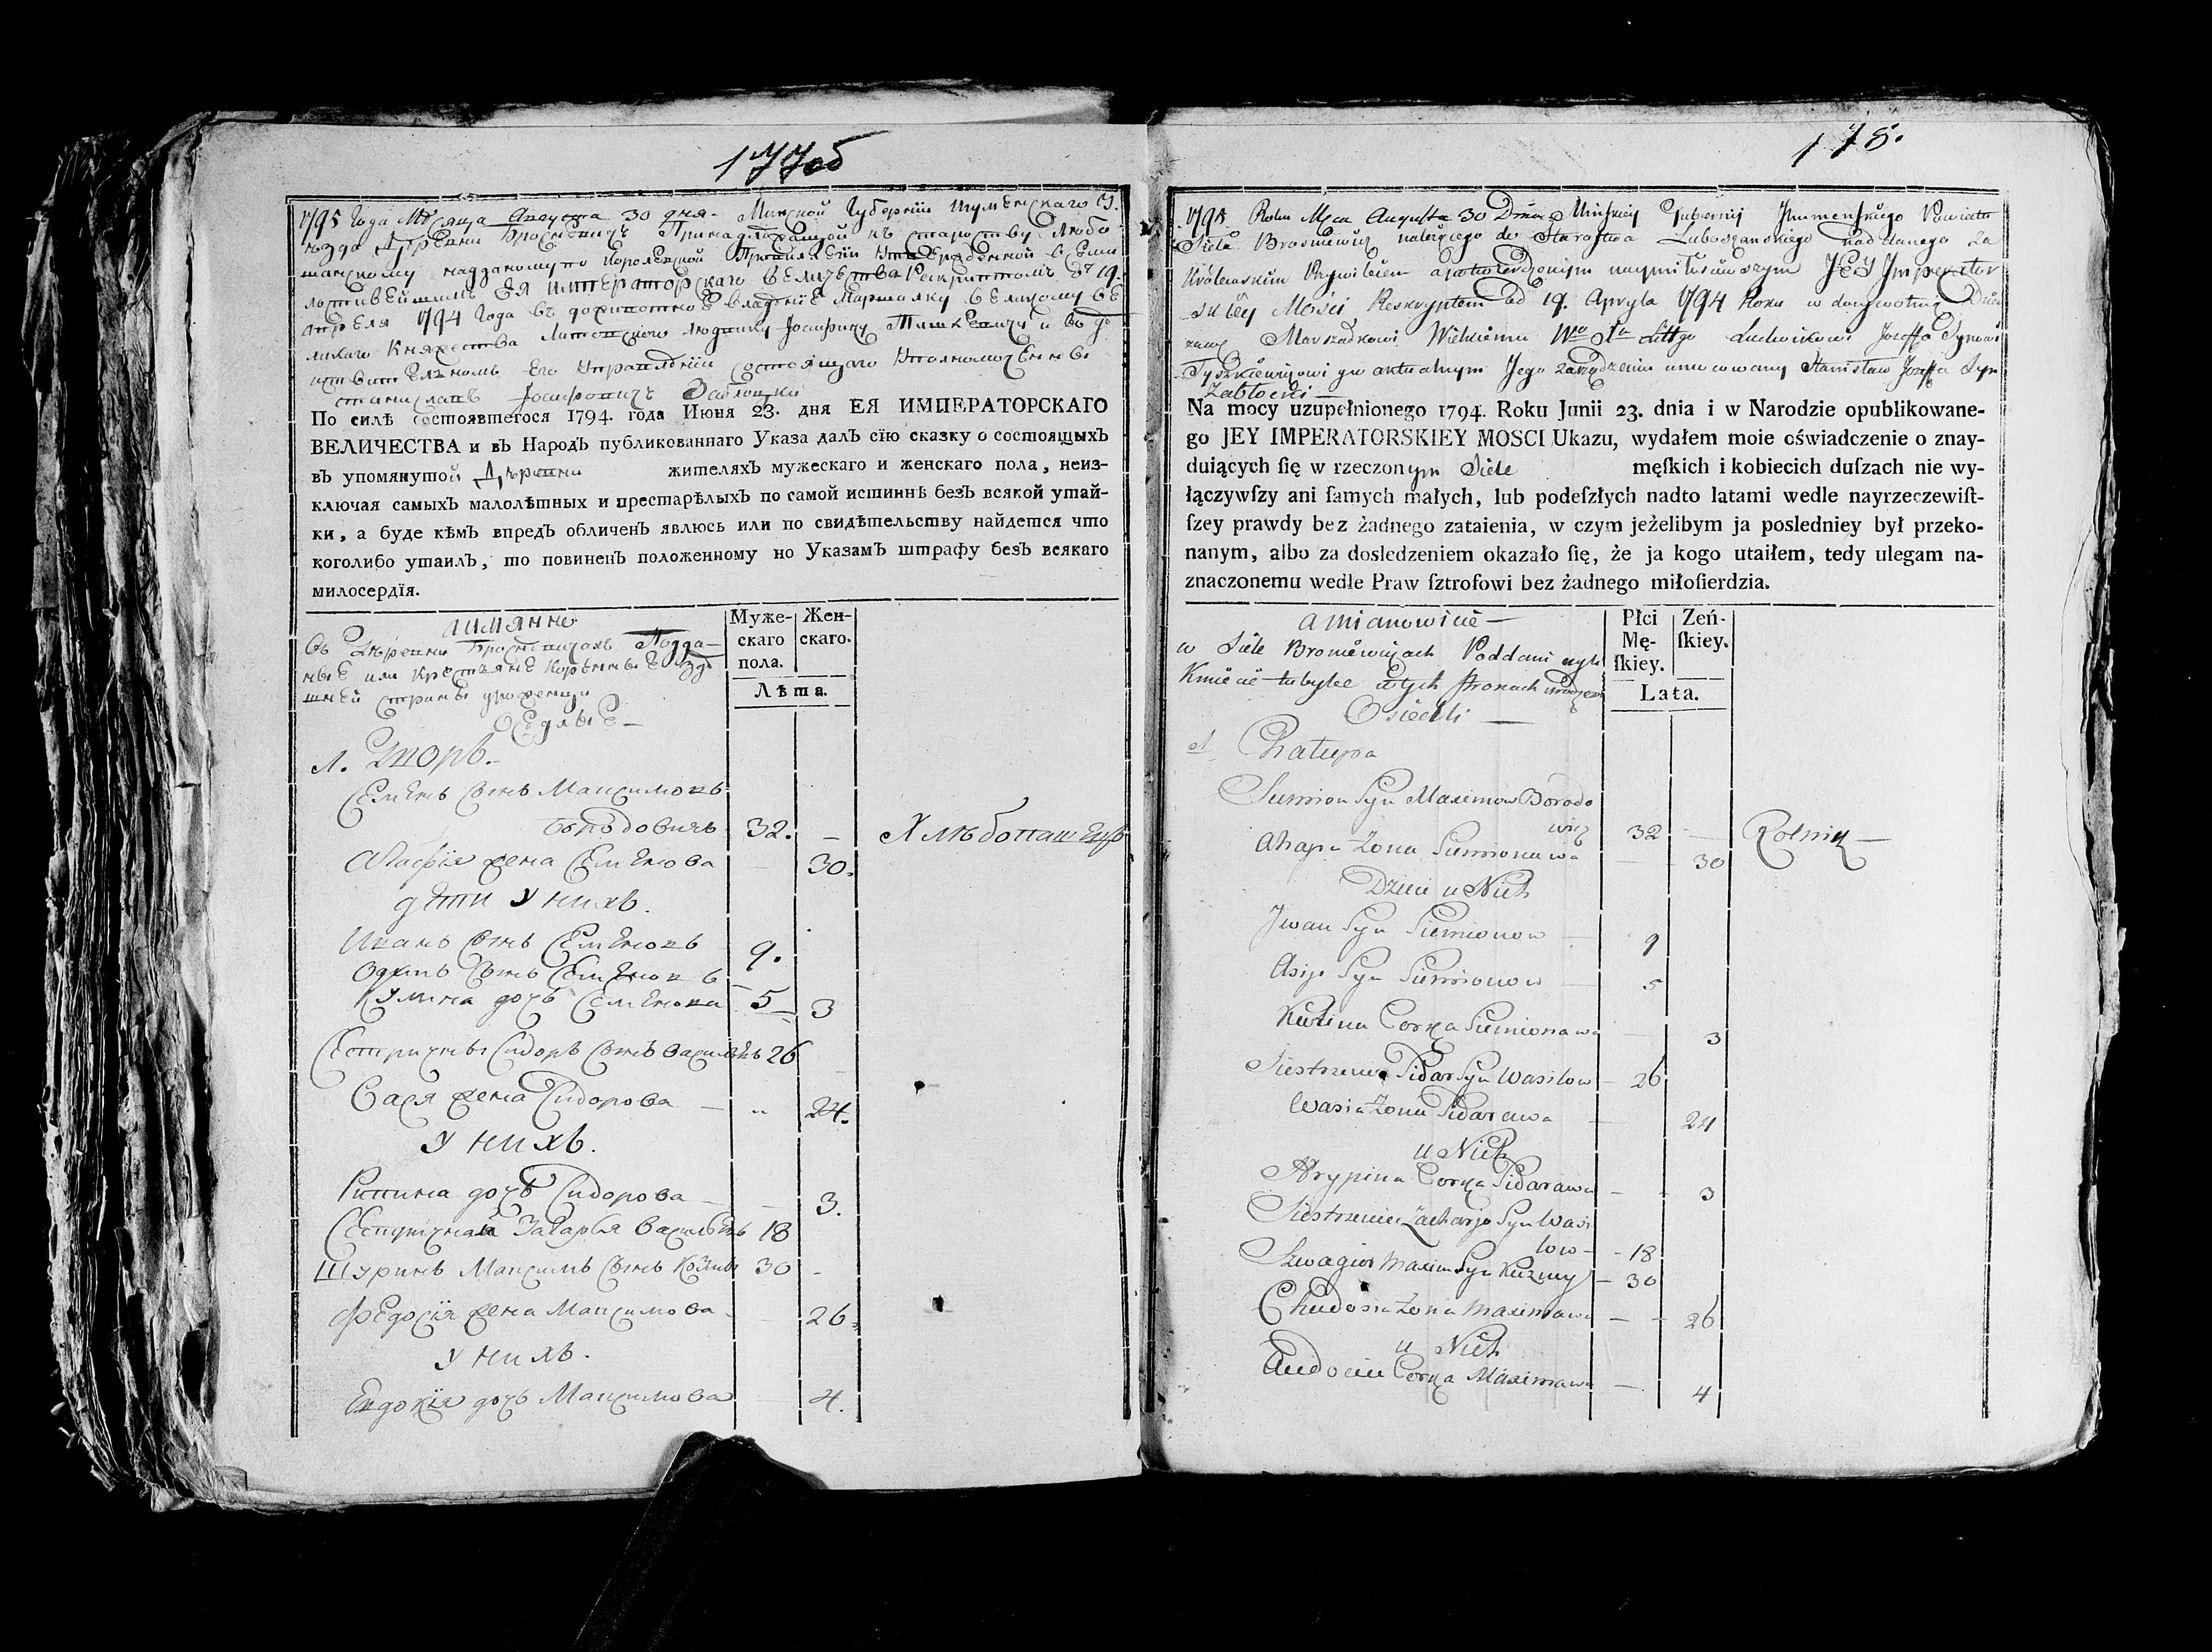 177об
1795 Года Мѣсяца Августа 30 дня. Минской Губернїи Игуменскаго У.
ѣзда Деревни Броснѣвичъ Принадлѣжащой къ староству Любо
шанскому надданому по королевской Привилегїи Утвержденной всеми
лостивѣйшимъ ЕЯ ИМПЕРАТОРСКАГО ВЕЛИЧЕСТВА Рескриптомъ от 19.
Апреля 1794 Года въ доживотное владѣнїе Маршалку великому ве
ликаго Княжества Литовскаго Людвику Иосифову Тишкевичу и въ дѣ
иствительномъ Его Управленїи состоящаго Уполномоченны
Станиславъ Иосифовичъ Заблоцки
По силѣ состоявшегося 1794. года Июня 23. дня ЕЯ ИМПЕРАТОРСКАГО
ВЕЛИЧЕСТВА и въ Народъ публикованнаго Указа далъ сїю сказку о состоящыхъ
въ упомянутой Деревни жителяхъ мужескаго и женскаго пола, неиз-
ключая самыхъ малолѣтных и престарѣлыхъ по самой истиннѣ безъ всякой утай-
ки, а буде кѣмъ впредъ обличенъ явлюсь или по свидѣтельству найдется что
коголибо утаилъ, то повиненъ положенному по Указамъ штрафу безъ всякаго
милосердїя.
Муже- Жен-
скаго скаго.
пола.
Лѣта.
имянно
Въ Деревни Броснѣвичахъ Подда-
ные или Крестьяне Корѣнные здѣ
шнѣй страны уроженцы
Оседлые
1. Дворъ.
Семенъ Сынъ Максимовъ
Бородовичъ 32. — Хлѣбопашецъ
Агафїя жена Семенова — 30.
дѣти У нихъ.
Иванъ Сынъ Семеновъ 9.
Сынъ Семеновъ
Кулина дочь Семенова 5 3
Сестричны Сидоръ Сынъ Василевъ 26
Вася жена Сидорова — 24.
У нихъ.
дочь Сидорова — 3.
Захарья Васильевъ 18
Шуринъ Максимъ Сынъ Козмы 30 -
Федосїя жена Максимова — 26.
У нихъ.
Евдокїя дочь Максимова 4.
178.
1795 Roku Mca Augusta 30 Dnia Minskiey Gubernij Ihumenskiego Powiatu
Sieła Brosniewicz należącego do Starostwa Luboszanskiego naddanego za
Królewskim Przywileiem a potwierdzonym naymiłościwszym JEY Imperator
skiey Mości Reskryptem od 19. Apryla 1794 Roku w dożywotnie Dzier
zawę Marszałkowi Wielkiemu Wo Xa Littgo Ludwikowi Jozeffa Synowi
Tyszkiewiczowi y w aktualnym Jego zarządzeniu umocowany Stanisław Jozeffa Syn
Zabłocki —
Na mocy uzupełnionego 1794. Roku Junii 23. dnia i w Narodzie opublikowane-
go JEY IMPERATORSKIEY MOSCI Ukazu, wydałem moie oświadczenie o znay-
duiących ſię w rzeczonym Siele męſkich i kobiecich duſzach nie wy-
łączywſzy ani ſamych małych, lub podeſzłych nadto latami wedle nayrzeczewiſt-
ſzey prawdy bez żadnego zataienia, w czym jeżelibym ja posledniey był przeko-
nanym, albo za dosledzeniem okazało ſię, że ja kogo utaiłem, tedy ulegam na-
znaczonemu wedle Praw ſztrofowi bez żadnego miłoſierdzia.
Płci Zeń-
Mę- ſkiey.
ſkiey.
Lata.
a mianowicie —
w Siele Brosniewiczach Poddani czyli
Kmiecie tubylce w tych stronach urodzeni
Osiedli —
1. Chałupa
Siemion Syn Maximow Borodo
wicz 32 — Rolnik —
Ahapa Zona Siemionowa — 30
Dzieci u Nich
Jwan Syn Siemionow — 9
Asip Syn Siemionow — 5
Kulina Corka Siemionawa — 3
Siestrzeniec Sidar Syn Wasilow — 26
Wasia Zona Sidarawa — 24
u Nich
Ahrypina Corka Sidarawa — 3
Siestrzeniec Zacharja Syn Wasi
low — 18
Szwagier Maxim Syn Kuzmy — 30
Chwedosia Zona Maximawa — 26
u Nich
Corka Maximawa — 4